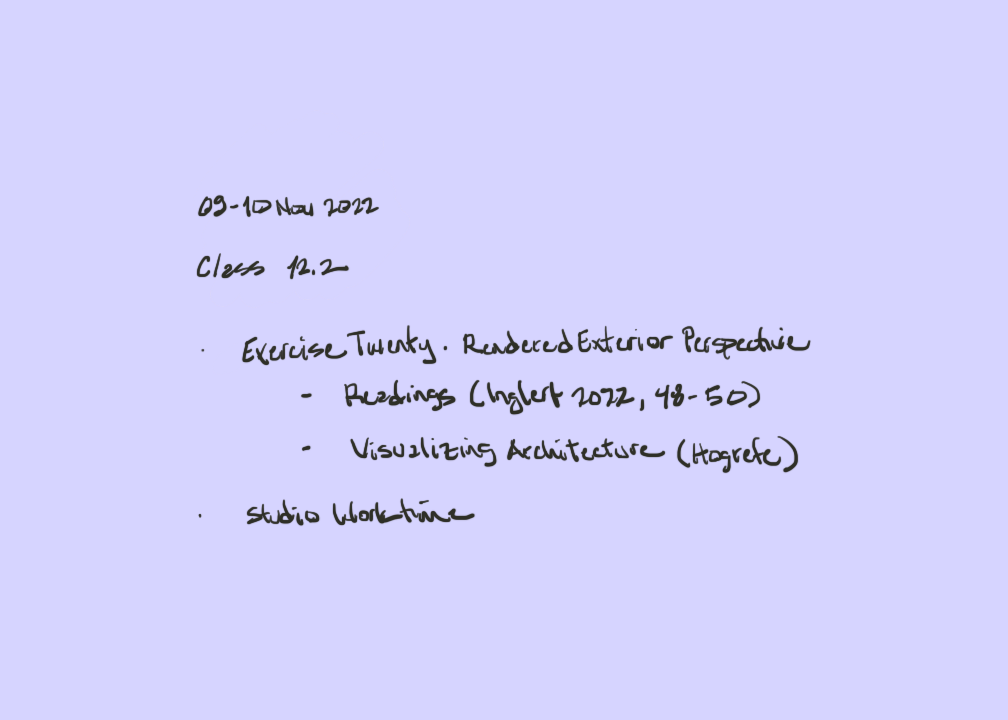 09-10 Nov 2022
Class 12.2
· Exercise Twenty. Rendered Exterior Perspective
- Readings (Inglert 2022, 48-50)
- Visualizing Architecture (Hogrefe)
· Studio Worktime